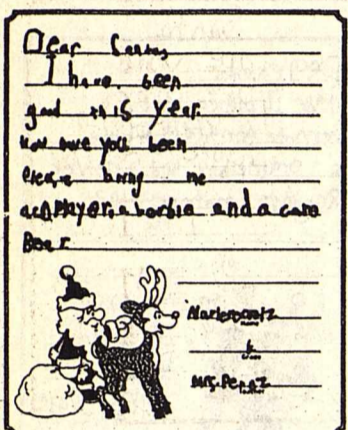 Dear Santa,
I have been
good this year.
how have you been
please bring me
a CD Player, a barbie and a care
Bear
Name
Mrs. Perez